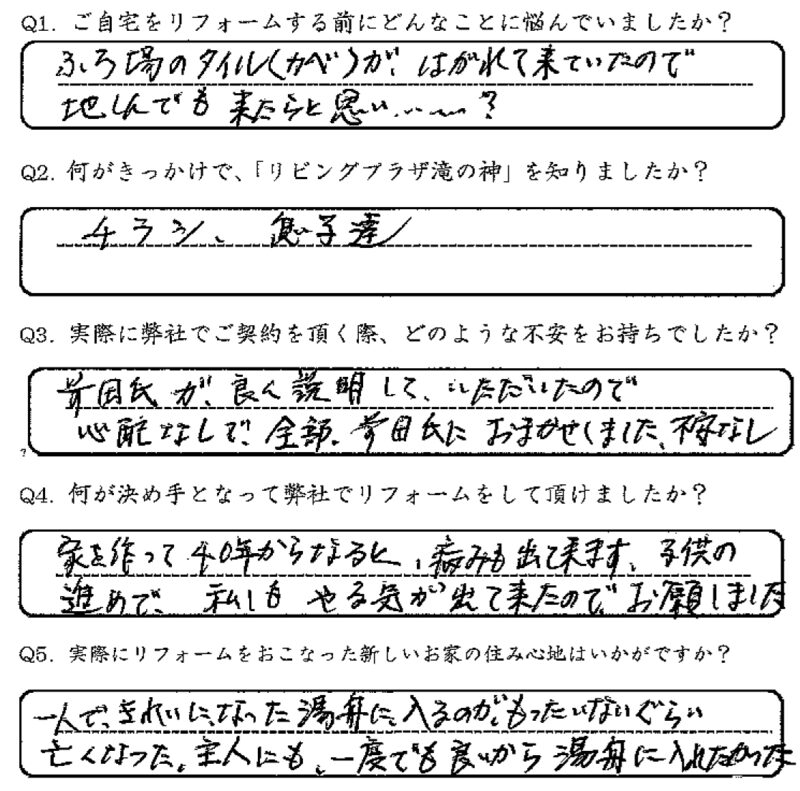 Q1. ご自宅をリフォームする前にどんなことに悩んでいましたか？
ふろ場のタイル(カベ)が、はがれて来ていたので
地しんでも来たらと思い……〜？
Q2. 何がきっかけで、「リビングプラザ滝の神」を知りましたか？
チラシ、息子達
Q3. 実際に弊社でご契約を頂く際、どのような不安をお持ちでしたか？
前田氏が、良く説明して、いただいたので
心配なしで、全部、前田氏におまかせしました、不安なし
Q4. 何が決め手となって弊社でリフォームをして頂けましたか？
家を作って40年からなると、病みも出て来ます、子供の
進めで、私しもやる気が出て来たのでお願しました
Q5. 実際にリフォームをおこなった新しいお家の住み心地はいかがですか？
一人で、きれいに、なった湯舟に、入るのが、もったいないぐらい
亡くなった、主人にも、一度でも良いから湯舟に入れたかった